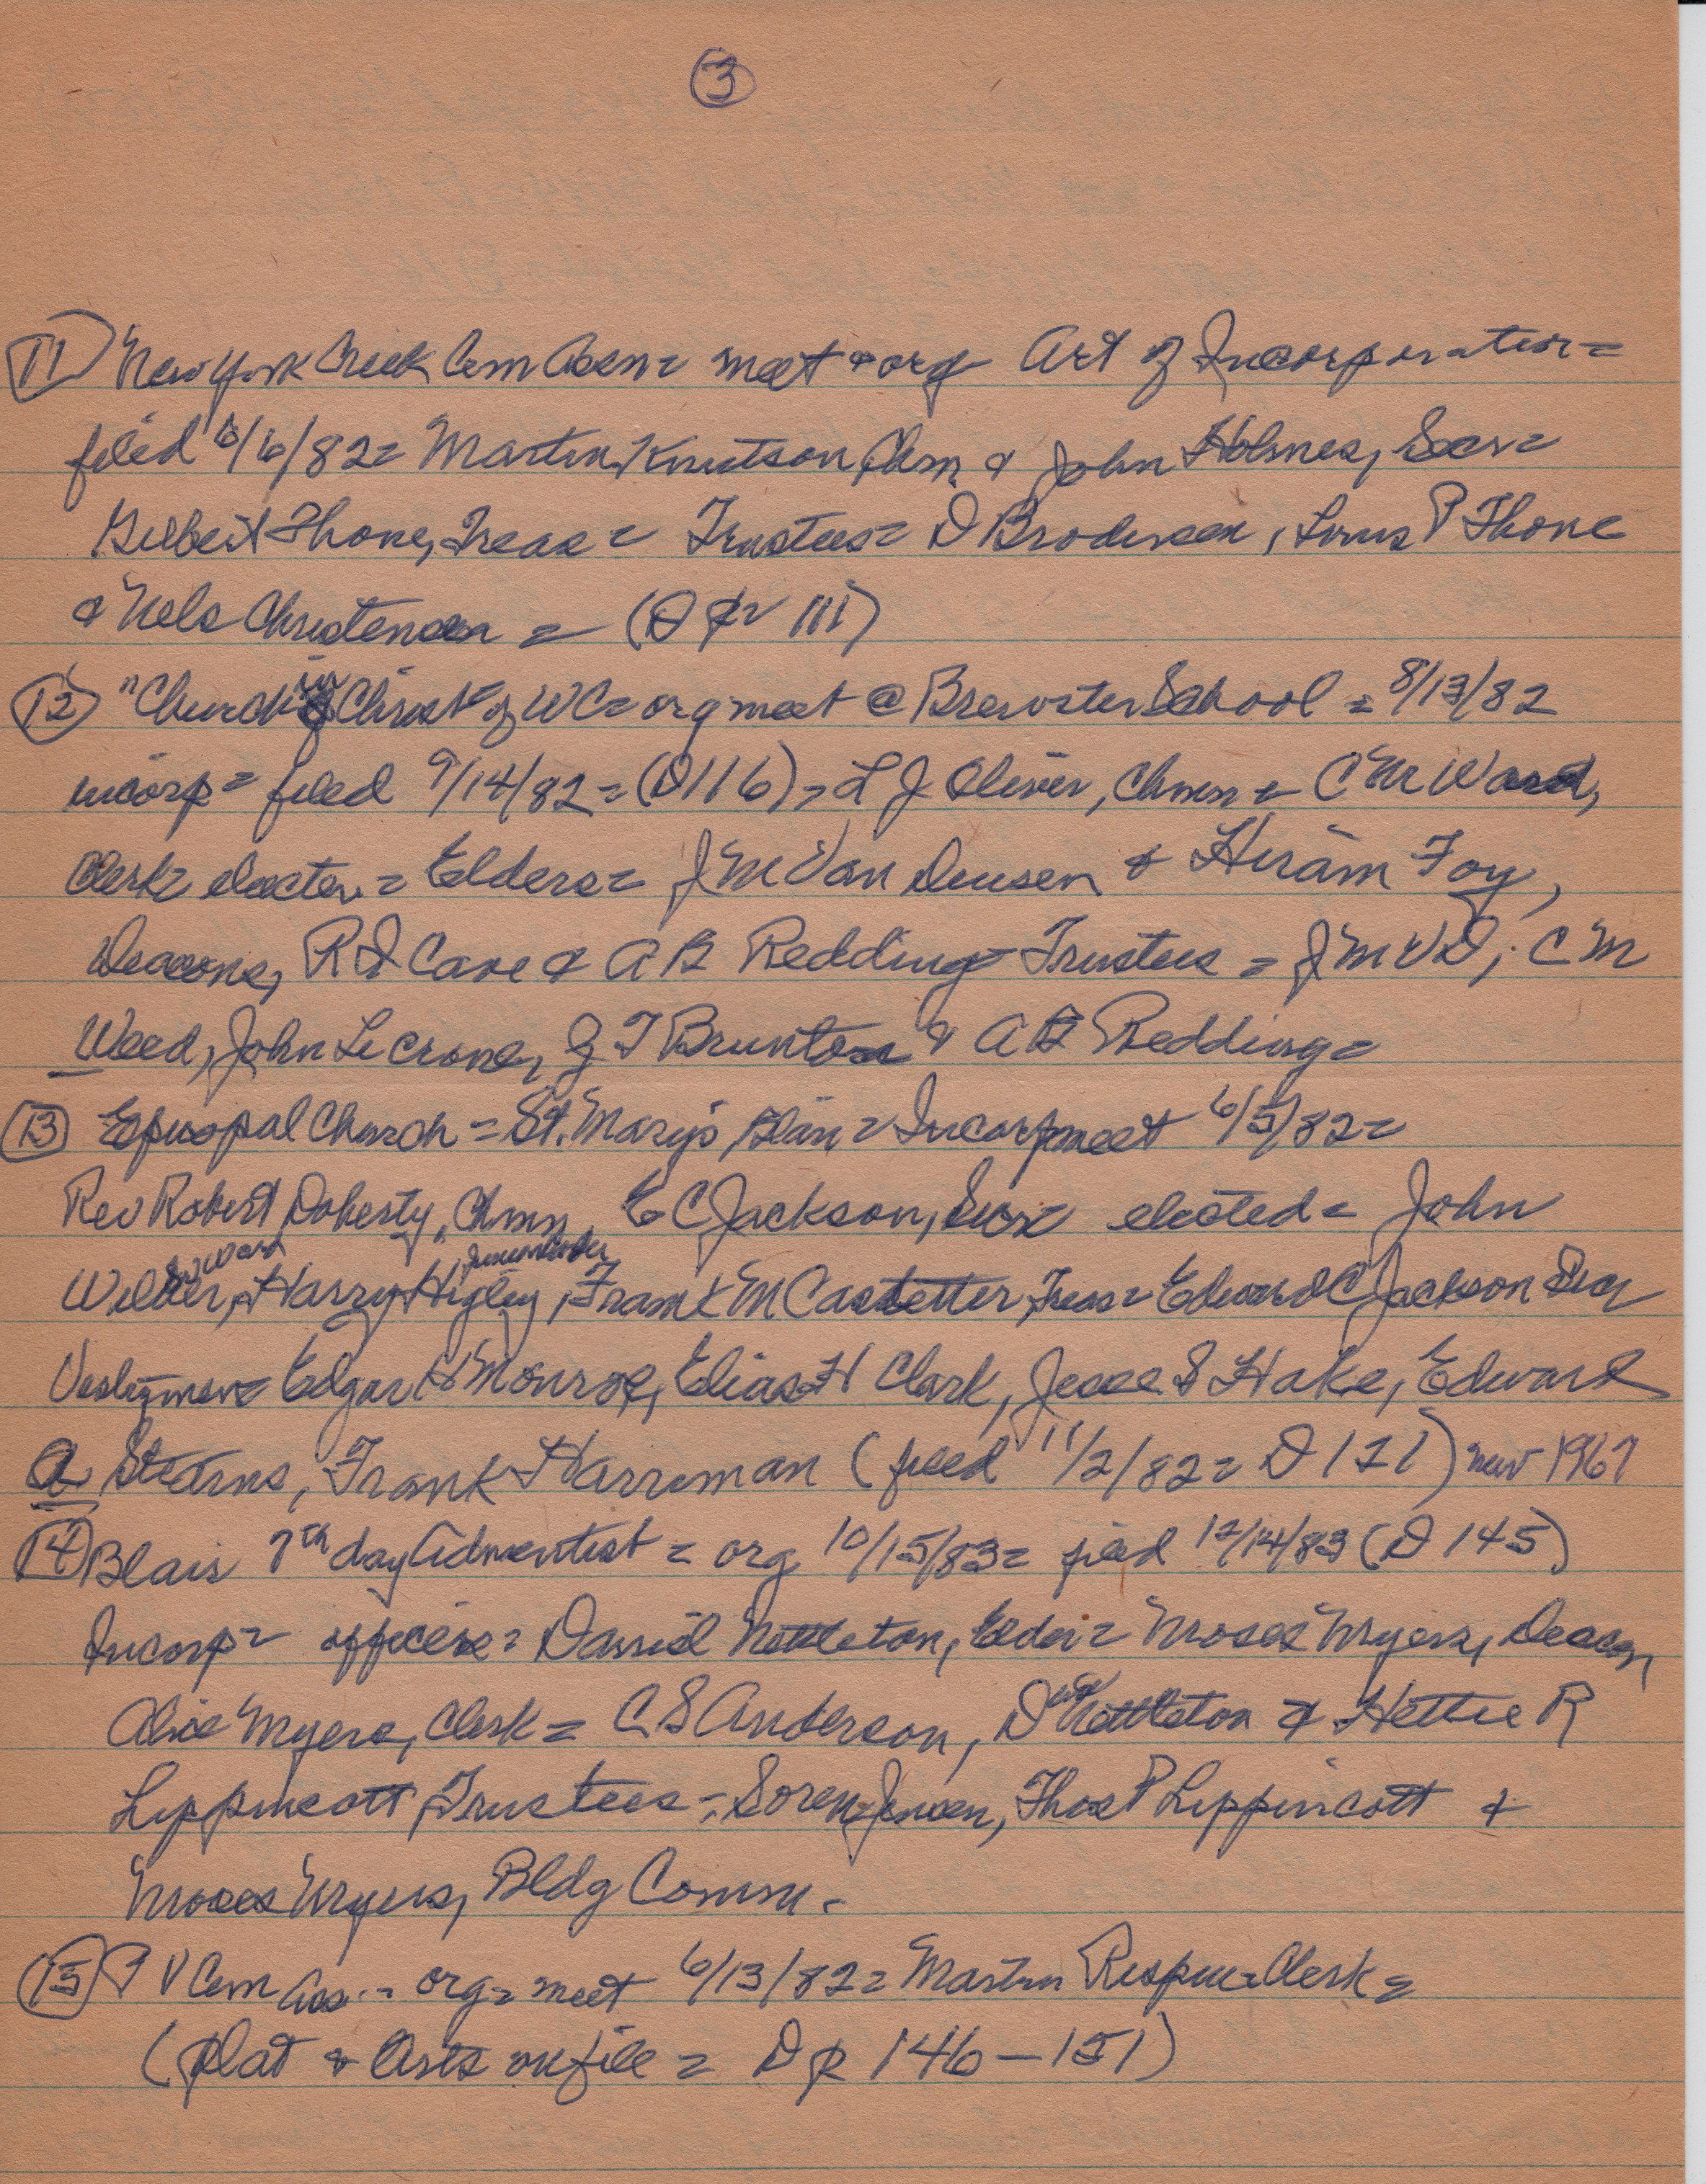 3
11 New York Creek Cem Assn = meet & org Art of Incorporation =
filed 6/6/82 = Martin Knutson Chm & John Holmes, Sec =
Gilbert Thone, Treas = Trustees = D Brodersen, Louis P Thone
& Nels Christensen = (D p 111)
12 "Church in Christ" of WC = org meet @ Brewster School = 8/13/82
incorp = filed 9/14/82 = (D 116) = L J Oliver, Chmn & C M Weed,
Clerk elected = Elders = J M Van Deusen & Hiram Foy,
Deacons, R I Care & A B Redding = Trustees = J M V D, C M
Weed, John Le Crone, G T Brunton & A B Redding =
13 Episcopal Church = St. Mary's Blair = Incorp meet 6/5/82 =
Rev Robert Doherty, Chmn, E C Jackson, Sec = elected = John
Sr Ward
Wilber, Harry Higley, Frank M Castetter, Treas = Edward C Jackson Sec
Vestrymen = Edgar H Monroe, Elias H Clark, Jesse S Hake, Edward
A Stearns, Frank Harriman (filed 11/2/82 = D 121) 1967
14 Blair 7th day Adventist = org 10/15/83 = filed 12/14/83 (D 145)
Incorp = officers = David Nettleton, Elder = Moses Myers, Deacon,
Alice Myers, Clerk = C S Anderson, D Nettleton & Hettie R
Lippincott, Trustees = Soren Jensen, Thos P Lippincott &
Moses Myers, Bldg Comm. =
15 P V Cem Ass. = org = meet 6/13/82 = Martin Clerk =
(plat & Arts on file = D p 146 – 151)